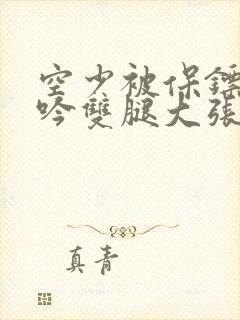 空少被保鏢
吟雙腿大張
真青